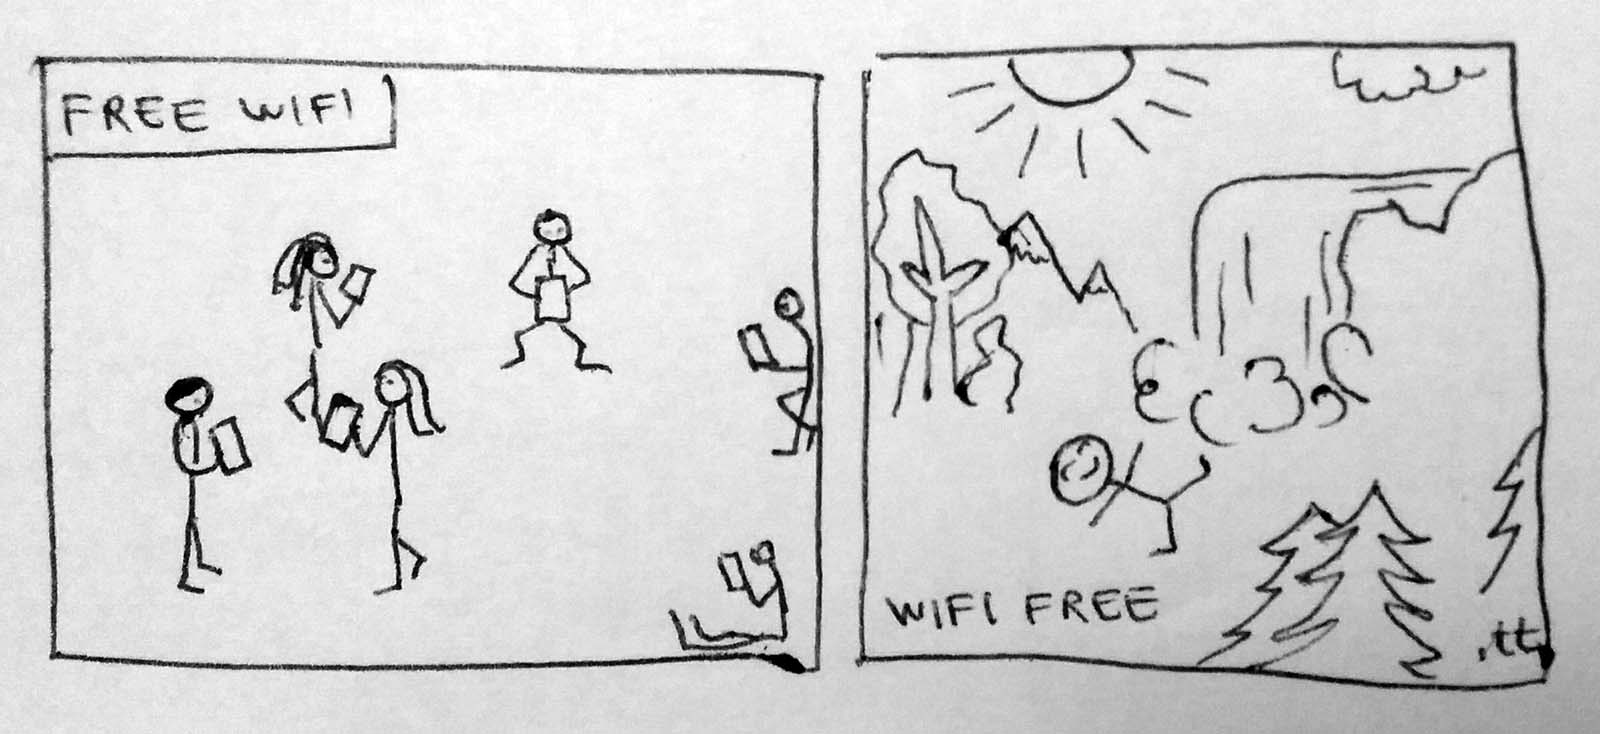 FREE WIFI
WIFI FREE
.tt